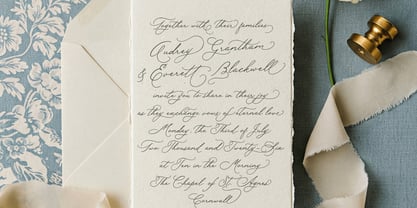 Together with their families
Audrey Grantham
& Everett Blackwell
invite you to share in their joy
as they exchange vows of eternal love
Monday, the Third of July
Two Thousand and Twenty-Six
at Ten in the Morning
The Chapel of St. Agnes
Cornwall